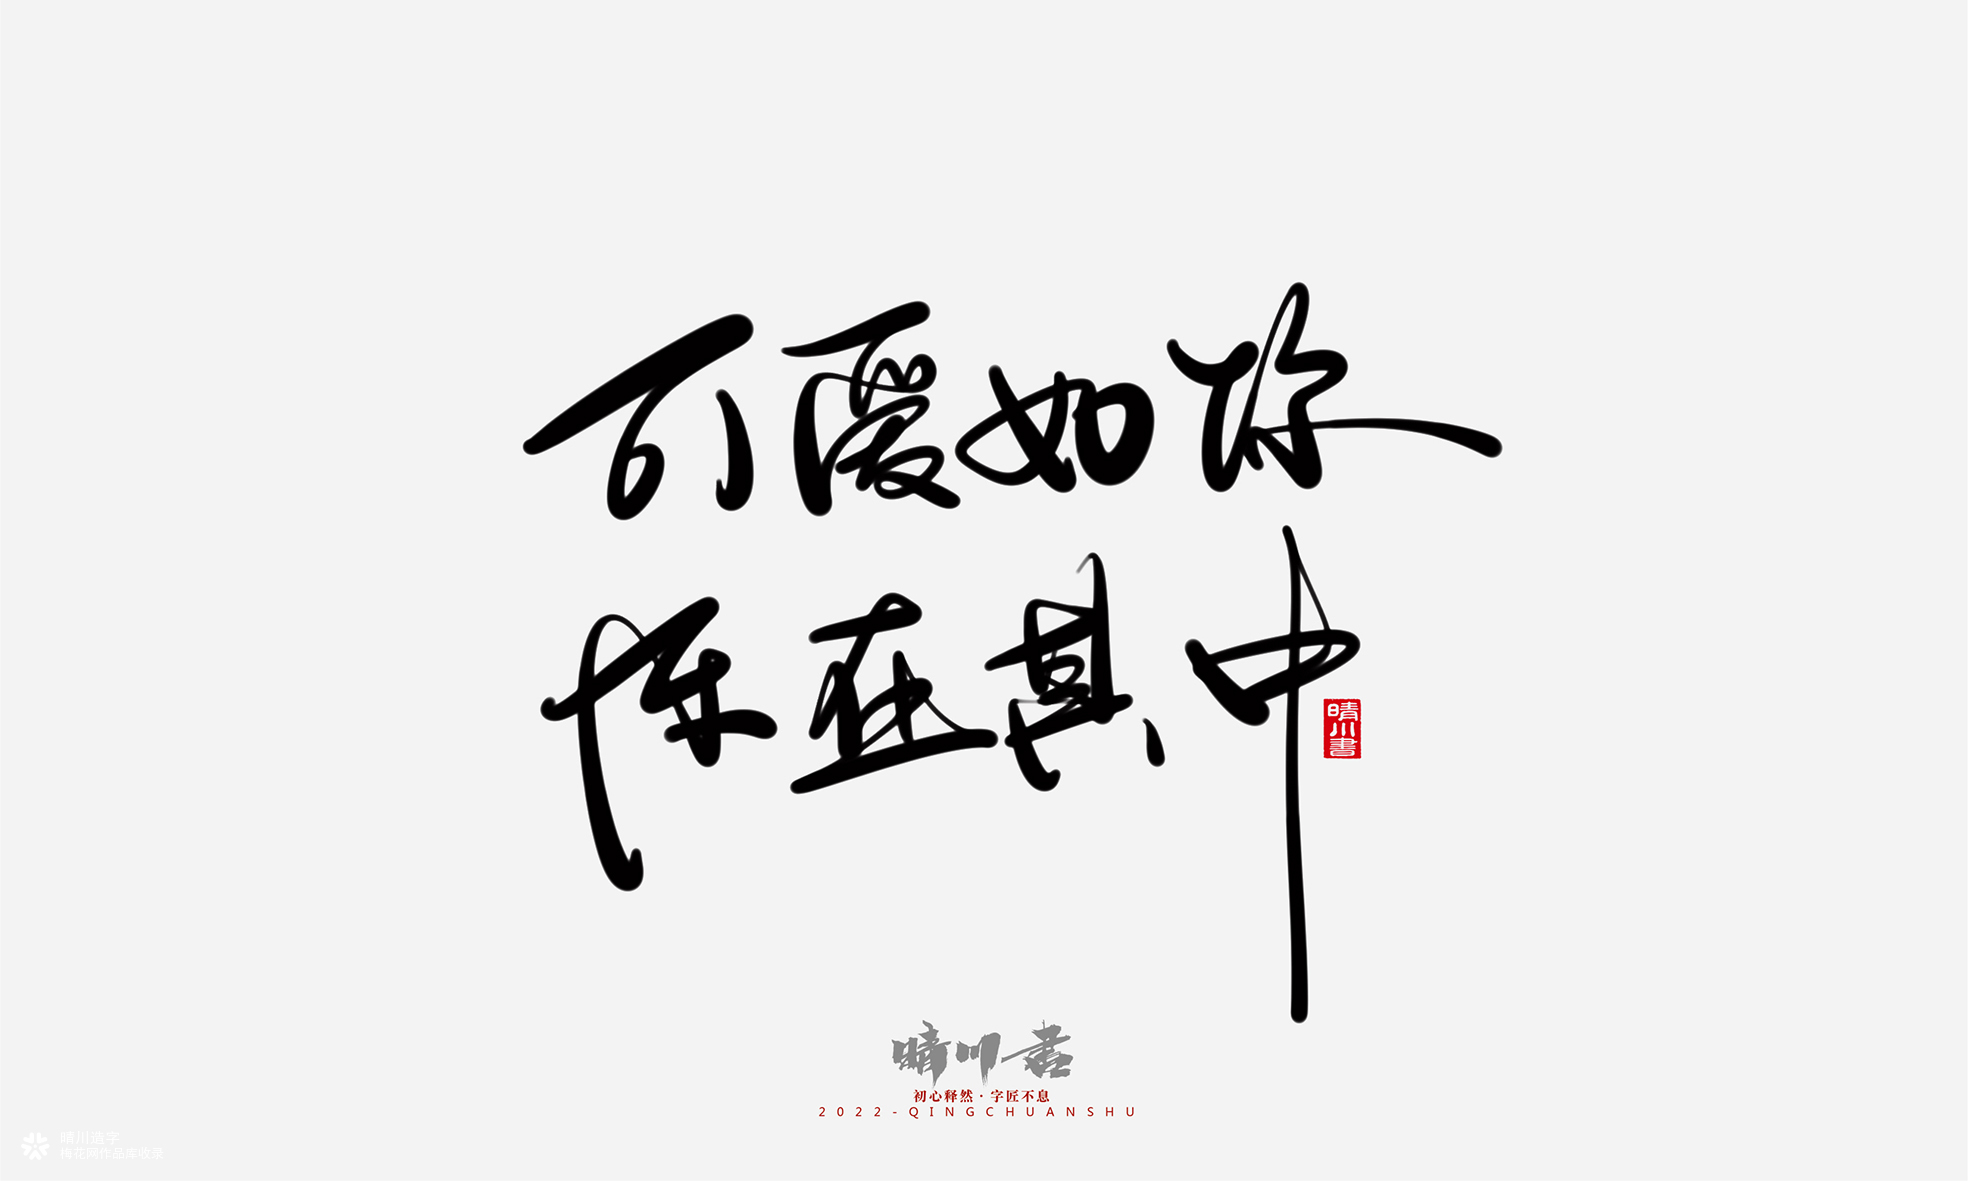 可爱如你
在其中
晴川書
晴川书
初心释然·字匠不息
2022-QINGCHUANSHU
晴川造字
梅花网作品库收录